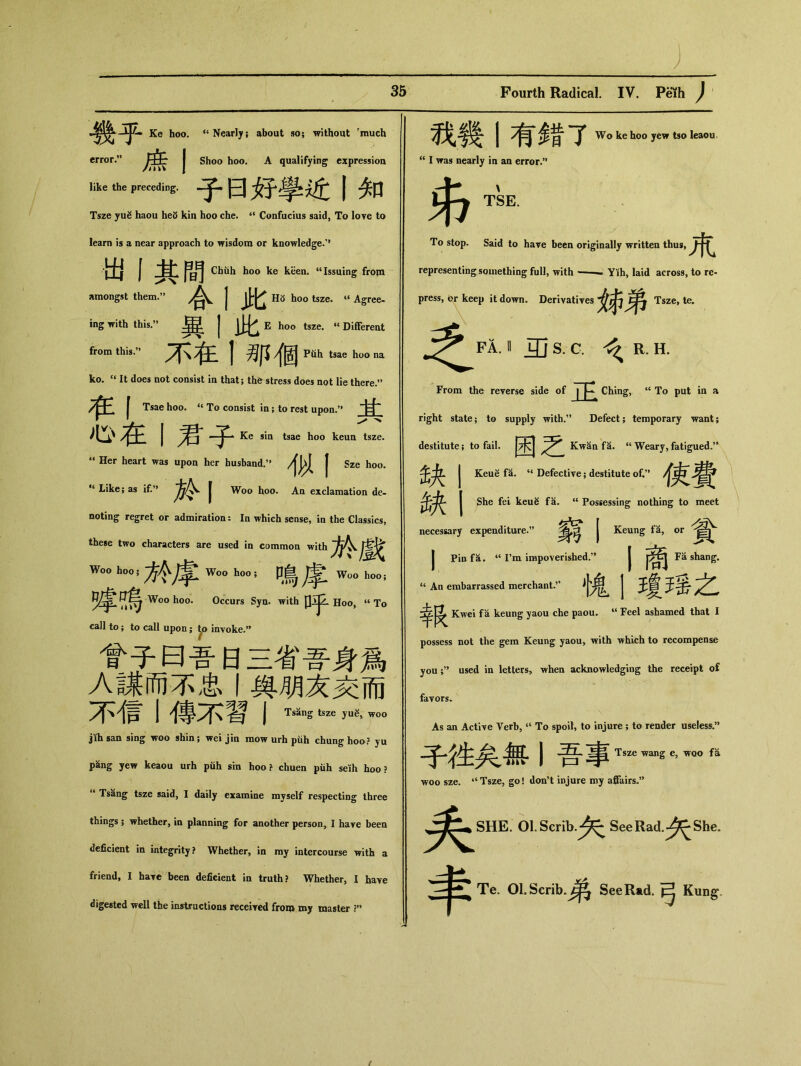 35 Fourth Radical. IV. Pëĭh 丿
幾乎 Ke hoo. “ Nearly; about so; without 'much
error.” 庶｜ Shoo hoo. A qualifying expression
like the preceding. 子曰好學近｜知
Tsze yuĕ haou heŏ kin hoo che. “ Confucius said, To love to
learn is a near approach to wisdom or knowledge.”
出｜其間 Chŭh hoo ke keen. “Issuing from
amongst them.” 合｜此 Hŏ hoo tsze. “ Agree-
ing with this.” 異｜此 E hoo tsze. “ Different
from this.” 不在｜那個 Pŭh tsae hoo na
ko. “ It does not consist in that; the stress does not lie there.”
在｜ Tsae hoo. “ To consist in; to rest upon.” 其
心在｜君子 Ke sin tsae hoo keun tsze.
“ Her heart was upon her husband.” 似｜ Sze hoo.
“ Like; as if.” 於｜ Woo hoo. An exclamation de-
noting regret or admiration: In which sense, in the Classics,
these two characters are used in common with 於戲
Woo hoo; 於虖 Woo hoo; 嗚虖 Woo hoo;
嘑嗚 Woo hoo. Occurs Syn. with 呼 Hoo, “ To
call to; to call upon; to invoke.”
曾子曰吾日三省吾身爲
人謀而不忠｜與朋友交而
不信｜傳不習｜ Tsăng tsze yuĕ, woo
jĭh san sing woo shin; wei jin mow urh pŭh chung hoo? yu
păng yew keaou urh pŭh sin hoo? chuen pŭh seĭh hoo?
“ Tsăng tsze said, I daily examine myself respecting three
things; whether, in planning for another person, I have been
deficient in integrity? Whether, in my intercourse with a
friend, I have been deficient in truth? Whether, I have
digested well the instructions received from my master ?”
我幾｜有錯了 Wo ke hoo yew tso leaou.
“ I was nearly in an error.”
TSE.
To stop. Said to have been originally written thus,
representing something full, with —— Yĭh, laid across, to re-
press, or keep it down. Derivatives 姊弟 Tsze, te.
乏 FĂ. S. C. R. H.
From the reverse side of 正 Ching, “ To put in a
right state; to supply with.” Defect; temporary want;
destitute; to fail. 困乏 Kwăn fă. “ Weary, fatigued.”
缺｜ Keuĕ fă. “ Defective; destitute of.” 使費
缺｜ She fei keuĕ fă. “ Possessing nothing to meet
necessary expenditure.” 窮｜ Keung fă, or 貧
｜ Pin fă. “ I'm impoverished.” ｜商 Fă shang.
“ An embarrassed merchant.” 愧｜瓊瑶之
報 Kwei fă keung yaou che paou. “ Feel ashamed that I
possess not the gem Keung yaou, with which to recompense
you;” used in letters, when acknowledging the receipt of
favors.
As an Active Verb, “ To spoil, to injure; to render useless.”
子徃矣無｜吾事 Tsze wang e, woo fă
woo sze. “ Tsze, go! don't injure my affairs.”
SHE. Ol. Scrib. 矢 See Rad. 矢 She.
Te. Ol. Scrib. 弟 See Rad. 弓 Kung.